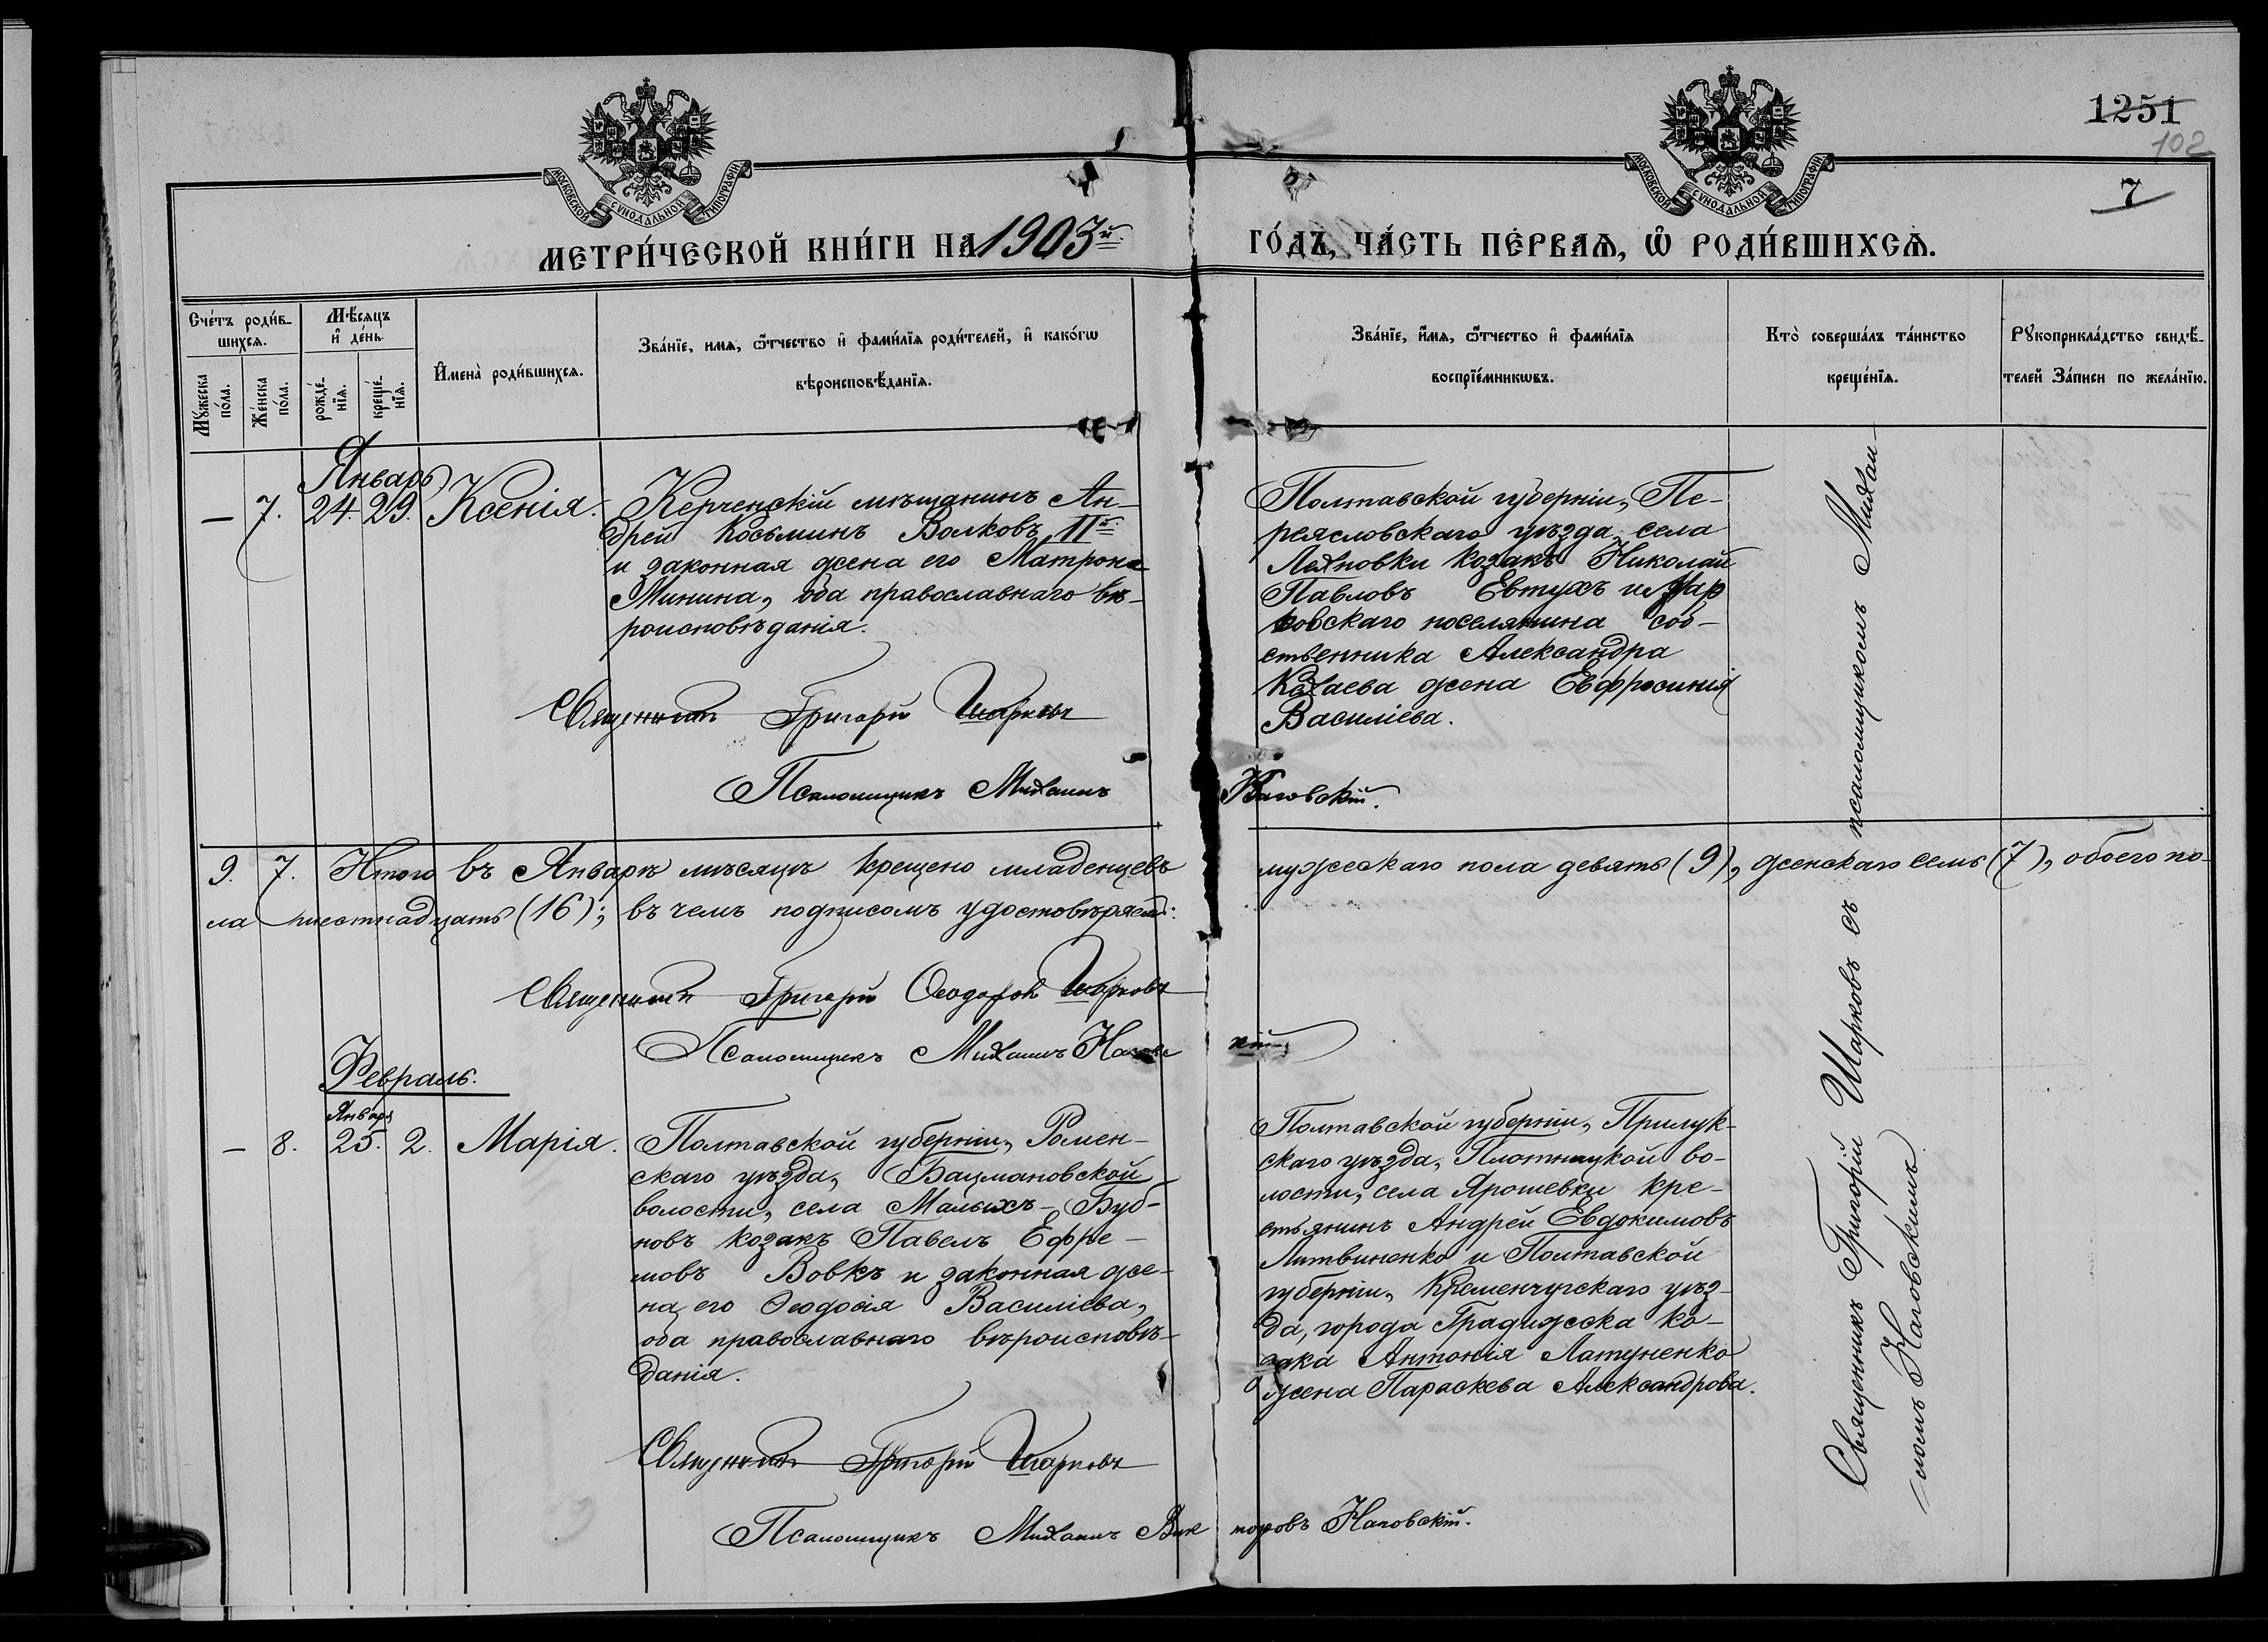 1251
102
7
МОСКОВСКОЙ СѴНОДАЛЬНОЙ ТИПОГРАФІИ
МОСКОВСКОЙ СѴНОДАЛЬНОЙ ТИПОГРАФІИ
МЕТРИ́ЧЕСКОЙ КНИ́ГИ НА 1903й ГО́ДЪ, ЧА́СТЬ ПЕ́РВАѦ, Ѿ РОДИ́ВШИХСѦ.
Сче́тъ роди́в-
шихсѧ.
Мꙋжеска
по́ла.
Же́нска
по́ла.
Мѣ́сѧцъ
и҆ де́нь.
рожде́-
нїѧ.
креще́-
нїѧ.
И҆мена̀ роди́вшихсѧ.
Зва́нїе, имѧ, ѻ҆́тчество и҆ фами́лїѧ роди́телей, и҆ како́гѡ
вѣроисповѣ́данїѧ.
Зва́нїе, и҆́мѧ, ѻ҆́тчество и҆ фами́лїѧ
воспрїе́мникѡвъ.
Кто̀ соверша́лъ та́инство
креще́нїѧ.
Рꙋкоприкла́дство свидѣ́-
телей За́писи по жела́нїю.
Январь
— 7. 24. 29. Ксенія.
Керченскій мѣщанинъ Ан-
дрей Косьминъ Волковъ IIй
и законная жена его Матрона
Минина, оба православнаго вѣ-
роисповѣданія.
Полтавской губерніи, Пе-
реясловскаго уѣзда, села
Лехновки козакъ Николай
Павловъ Евтухъ и Хар
ковскаго поселянина соб-
ственника Александра
жена Евфросинія
Василіева.
Священникъ Григорій Шарковъ
Псаломщикъ Михаилъ Наговскій.
9. 7. Итого въ Январѣ мѣсяцѣ крещено младенцевъ мужескаго пола девять (9), женскаго семь (7), обоего по-
ла шестнадцать (16); въ чемъ подписомъ удостовѣряемъ:
Священникъ Григорій Ѳеодоровъ Шарковъ
Псаломщикъ Михаилъ Наговскій
Февраль.
Января
— 8. 25. 2. Марія.
Полтавской губерніи, Ромен-
скаго уѣзда, Бацмановской
волости, села Малыхъ-Буб-
новъ козакъ Павелъ Ефре-
мовъ Вовкъ и законная же-
на его Ѳеодосія Василіева,
оба православнаго вѣроисповѣ-
данія.
Полтавской губерніи, Прилук-
скаго уѣзда, Плотницкой во-
лости, села Ярошевки кре-
стьянинъ Андрей Евдокимовъ
Литвиненко и Полтавской
губерніи, Кременчугскаго уѣз-
да, города Градижска ко-
зака Антонія Латуненко
жена Параскева Александрова.
Священникъ Григорій Шарковъ
Псаломщикъ Михаилъ Викторовъ Наговскій.
Священникъ Григорій Шарковъ съ псаломщикомъ Михаи-
ломъ Наговскимъ.